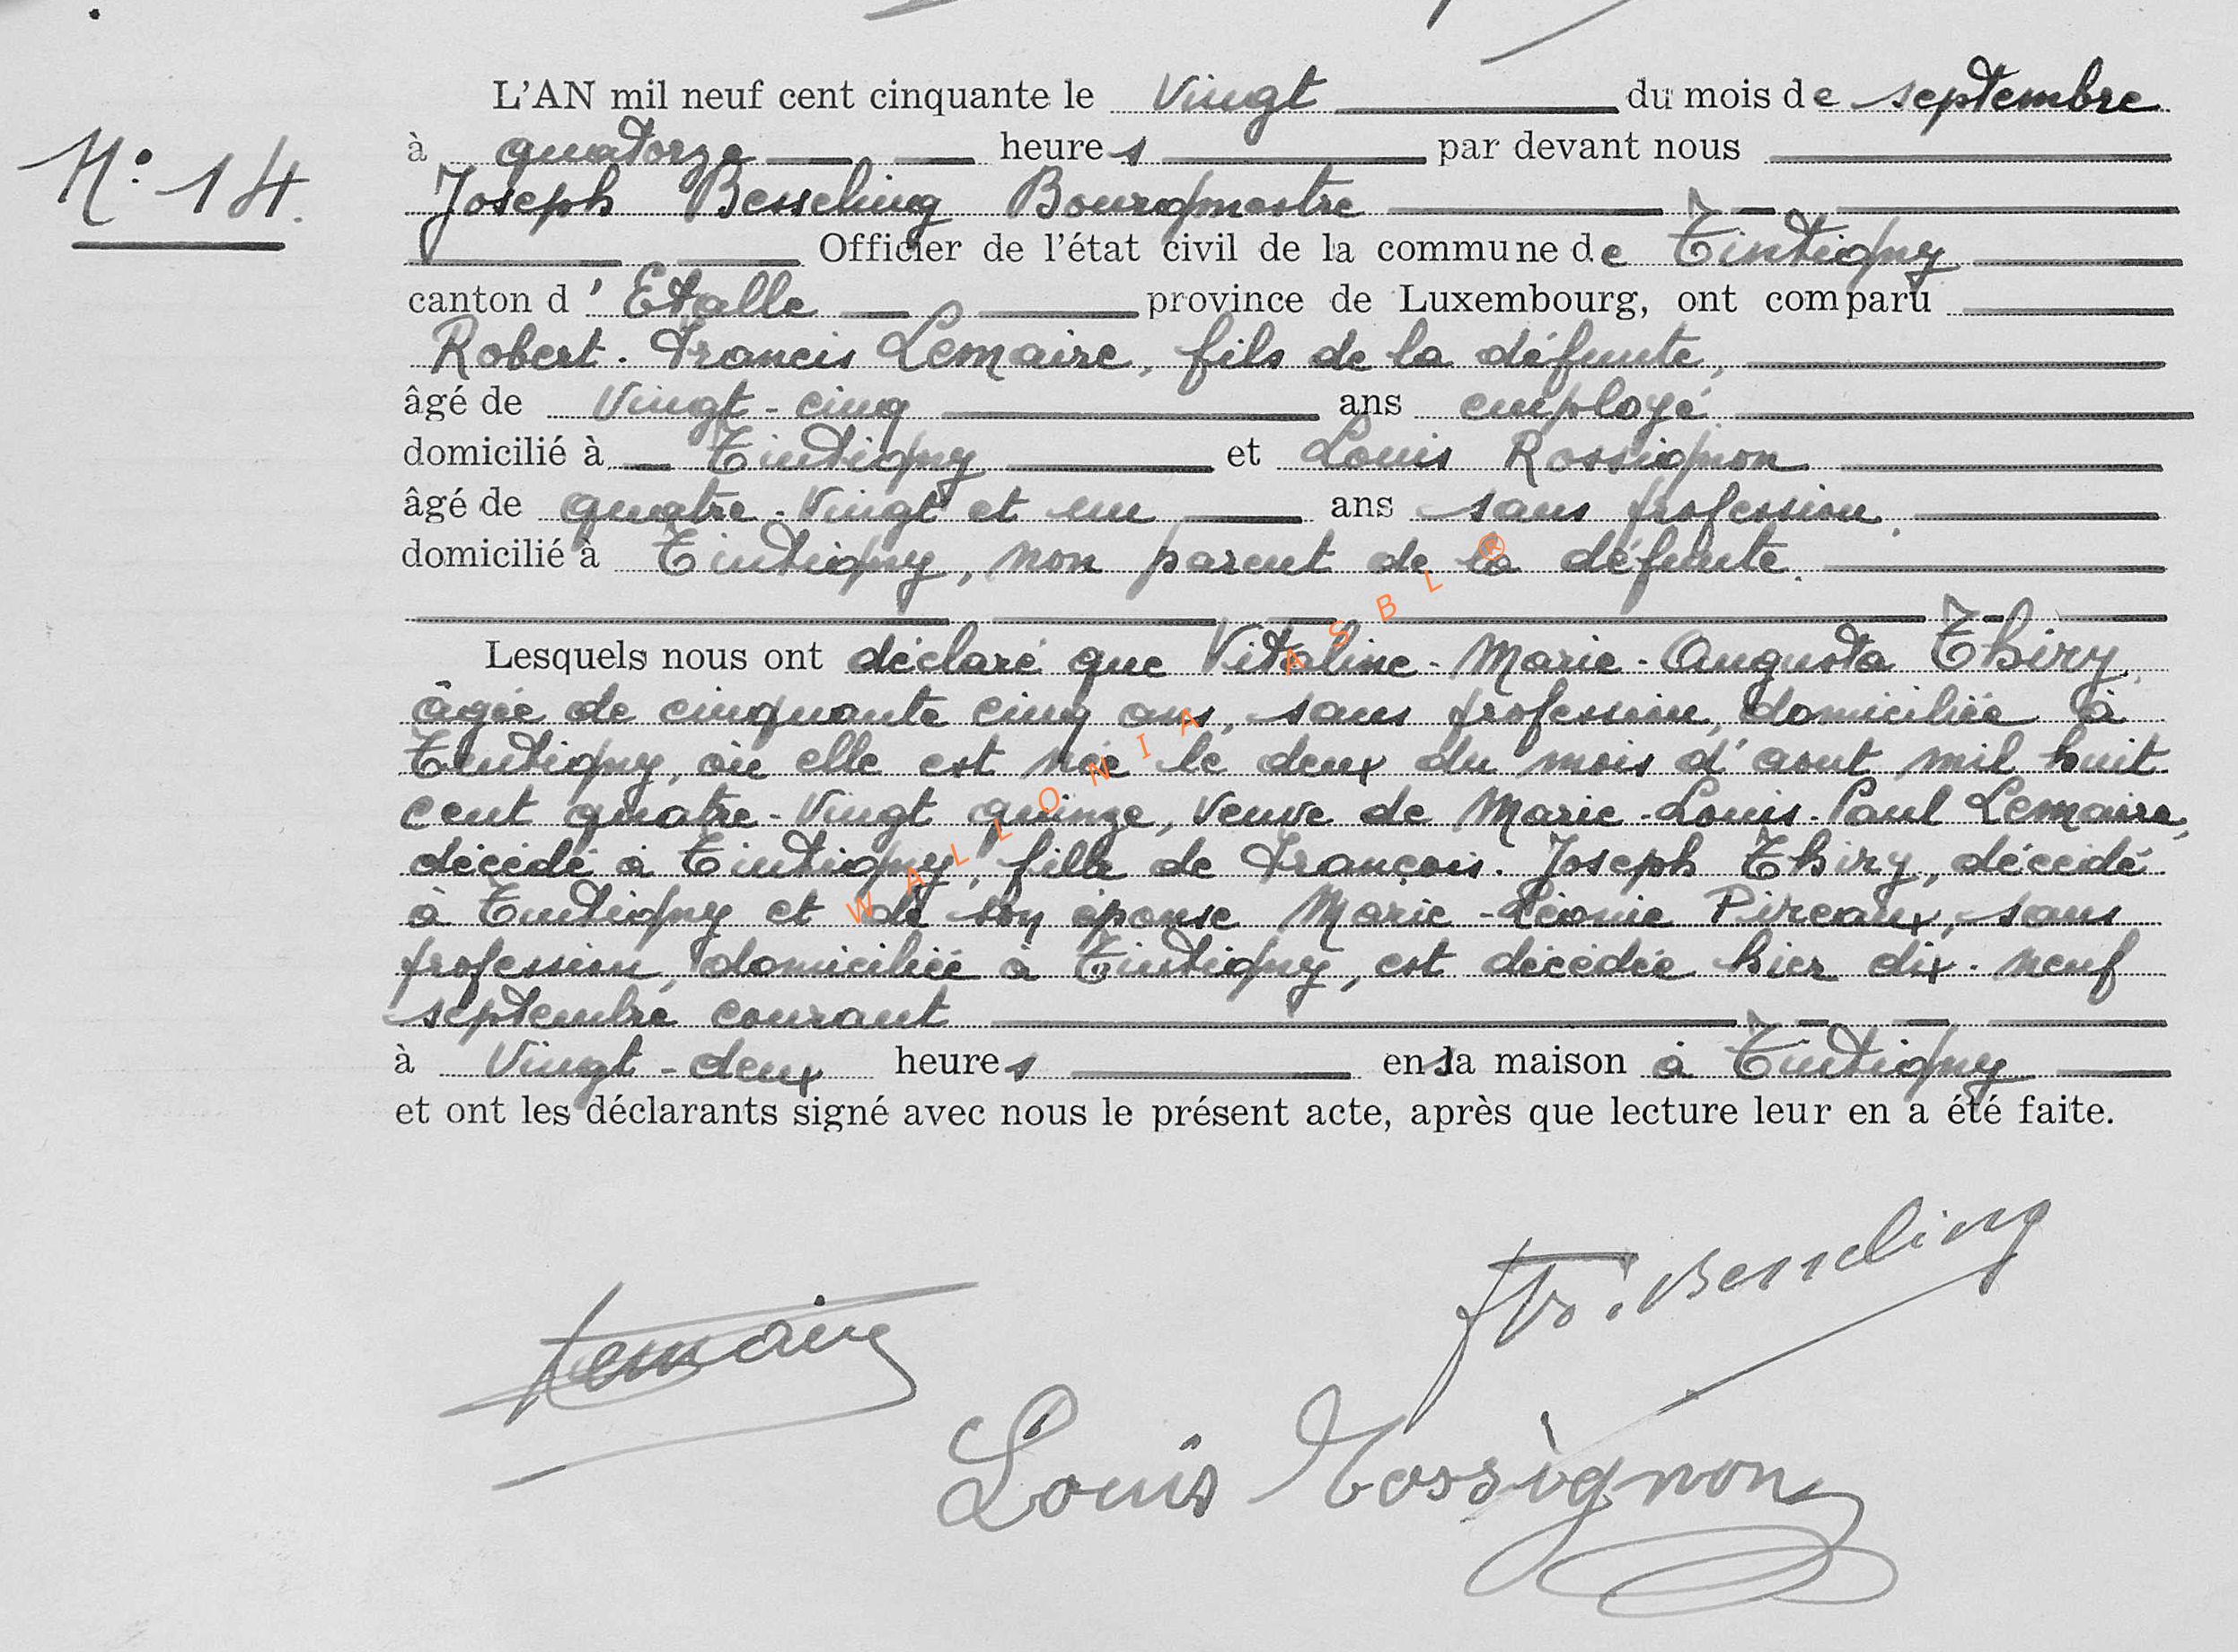 L'AN mil neuf cent cinquante le Vingt du mois de septembre
N° 14.
à quatorze heures par devant nous
Joseph Besseling Bourgmestre
Officier de l'état civil de la commune de Tintigny
canton d'Etalle province de Luxembourg, ont comparu
Robert-Francis Lemaire, fils de la défunte,
âgé de Vingt-cinq ans employé
domicilié à Tintigny et Louis Rossignon
âgé de quatre-Vingt et un ans sans profession
domicilié à Tintigny, non parent de la défunte.
Lesquels nous ont déclaré que Vitaline-Marie-Augusta Thiry,
âgée de cinquante cinq ans, sans profession, domiciliée à
Tintigny, où elle est née le deux du mois d'aout mil huit
cent quatre-Vingt quinze, veuve de Marie-Louis-Paul Lemaire,
décédé à Tintigny, fille de François-Joseph Thiry, décédé
à Tintigny et de son épouse Marie-Léonie Pireaux, sans
profession, domiciliée à Tintigny, est décédée hier dix-neuf
septembre courant
à Vingt-deux heures en sa maison à Tintigny
et ont les déclarants signé avec nous le présent acte, après que lecture leur en a été faite.
Besseling
Lemaire
Louis Rossignon
WALLONIA ASBL ®